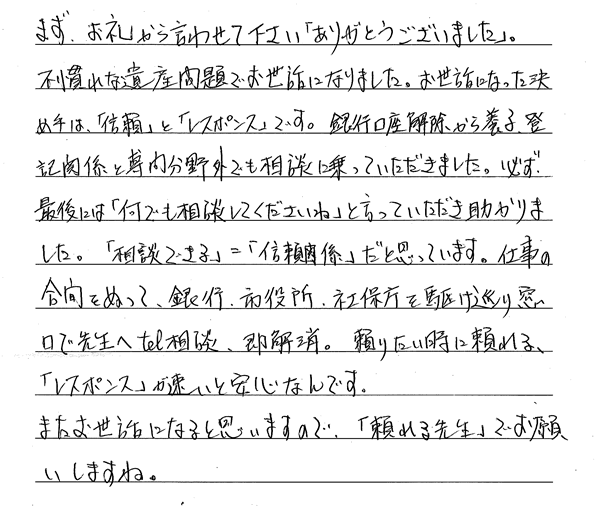 まず、お礼から言わせて下さい「ありがとうございました」。
不慣れな遺産問題でお世話になりました。お世話になった決
め手は、「信頼」と「レスポンス」です。銀行口座解除から養子、登
記関係と専門分野外でも相談に乗っていただきました。必ず、
最後には「何でも相談してくださいね」と言っていただき助かりま
した。「相談できる」=「信頼関係」だと思っています。仕事の
合間をぬって、銀行、市役所、社保庁を駆け巡り窓
口で先生へtel相談、即解消。頼りたい時に頼れる、
「レスポンス」が速いと安心なんです。
またお世話になると思いますので、「頼れる先生」でお願
いしますね。